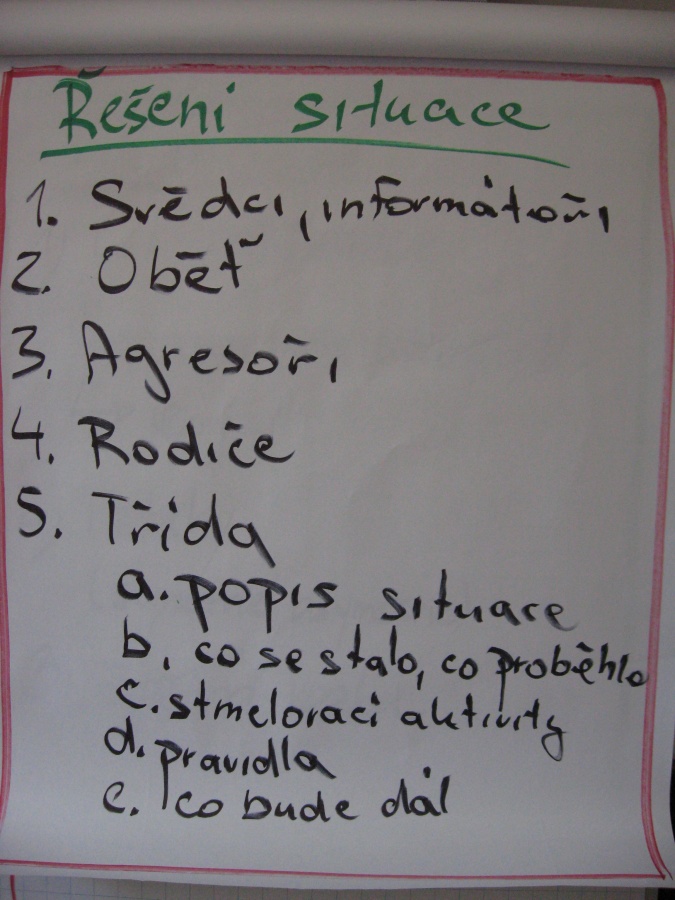 Řešení situace
1. Svědci, informátoři
2. Oběť
3. Agresoři
4. Rodiče
5. Třída
a. popis situace
b. co se stalo, co proběhlo
c. stmelovací aktivity
d. pravidla
e. co bude dál